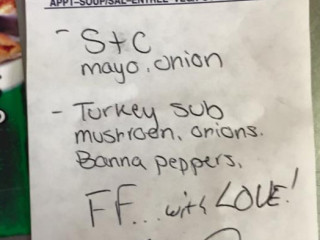 APPT-SOUP/SAL-ENTREE-VEG/
- S+C
mayo, onion
- Turkey Sub
mushroen, onions.
Banna peppers,
FF... with LOVE!